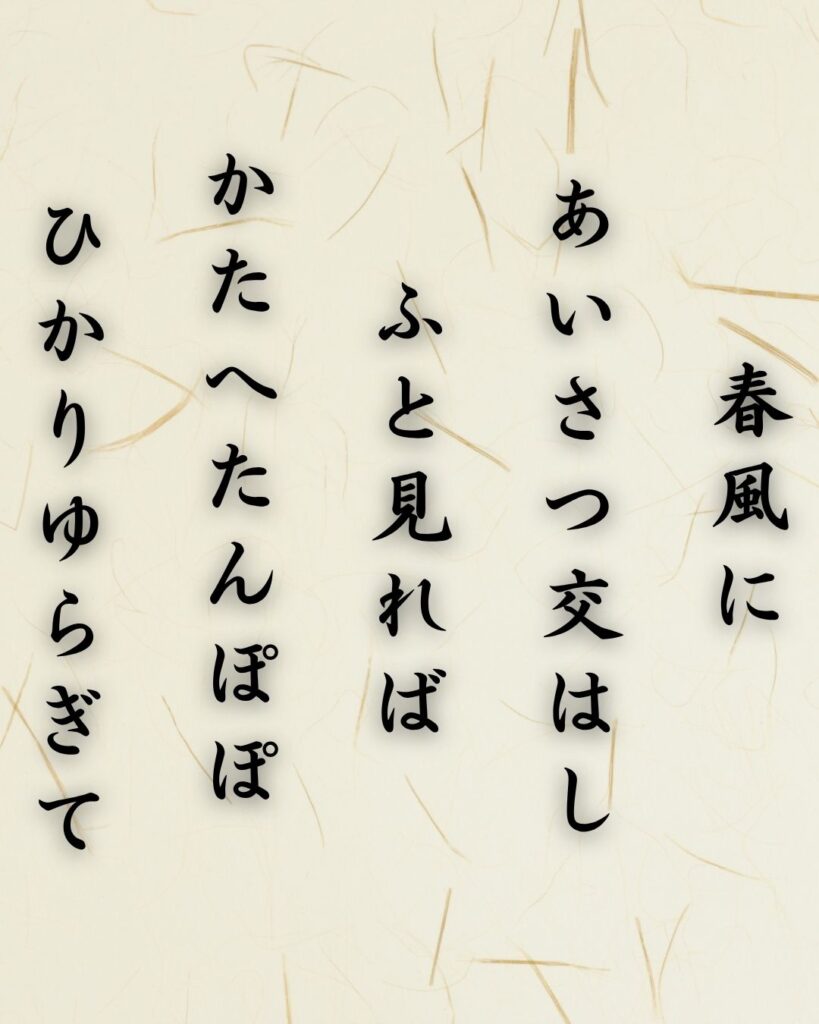 春風に
あいさつ交はし
ふと見れば
かたへたんぽぽ
ひかりゆらぎて